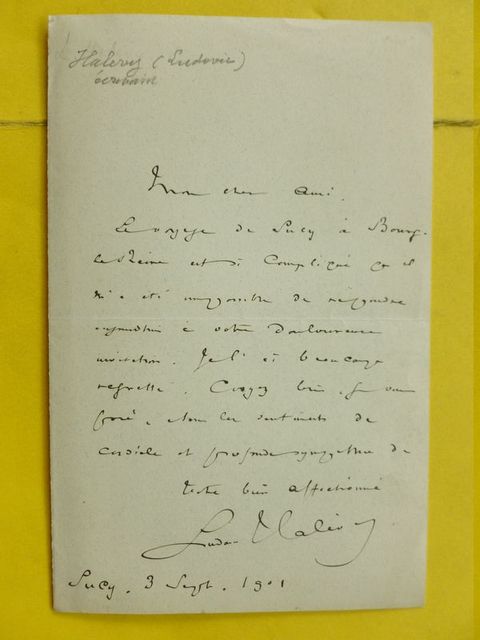 Halévy (Ludovic)
écrivain
Mon cher ami.
Le voyage de Sucy à Bourg-
la Reine est si compliqué qu'il
m'a été impossible de répondre
aujourd'hui à votre douloureuse
invitation. Je l'ai beaucoup
regretté. Croyez bien, je vous
prie, à tous les sentiments de
cordiale et profonde sympathie de
votre bien affectionné
Ludovic Halévy
Sucy. 3 Sept. 1901